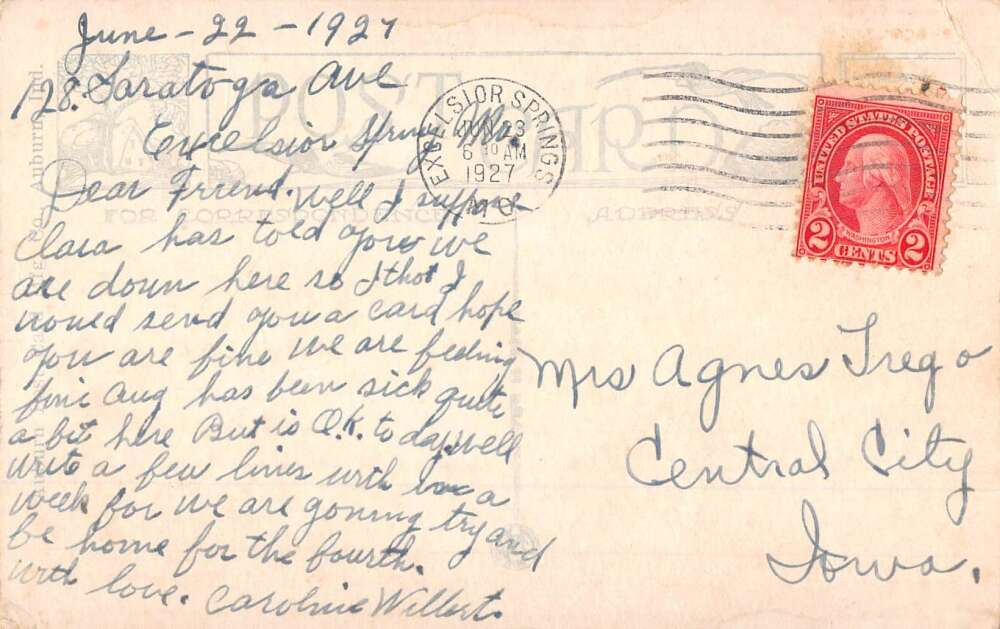 June - 22 - 1927
128. Saratoga Ave
Excelsior Springs Mo.
Dear Friend. Well I suppose
Clara has told you we
are down here so I thot I
would send you a card hope
you are fine we are feeling
fine Aug has been sick quite
a bit here But is O.K. to day. well
write a few lines with in a
week for we are goning try and
be home for the fourth.
with love. Caroline Willert.
POST CARD
FOR CORRESPONDENCE
ADDRESS
EXCELSIOR SPRINGS
JUN 23
6 30 AM
1927
MO.
UNITED STATES POSTAGE
WASHINGTON
2 CENTS 2
Mrs Agnes Trego
Central City
Iowa.
Auburn, Ind.